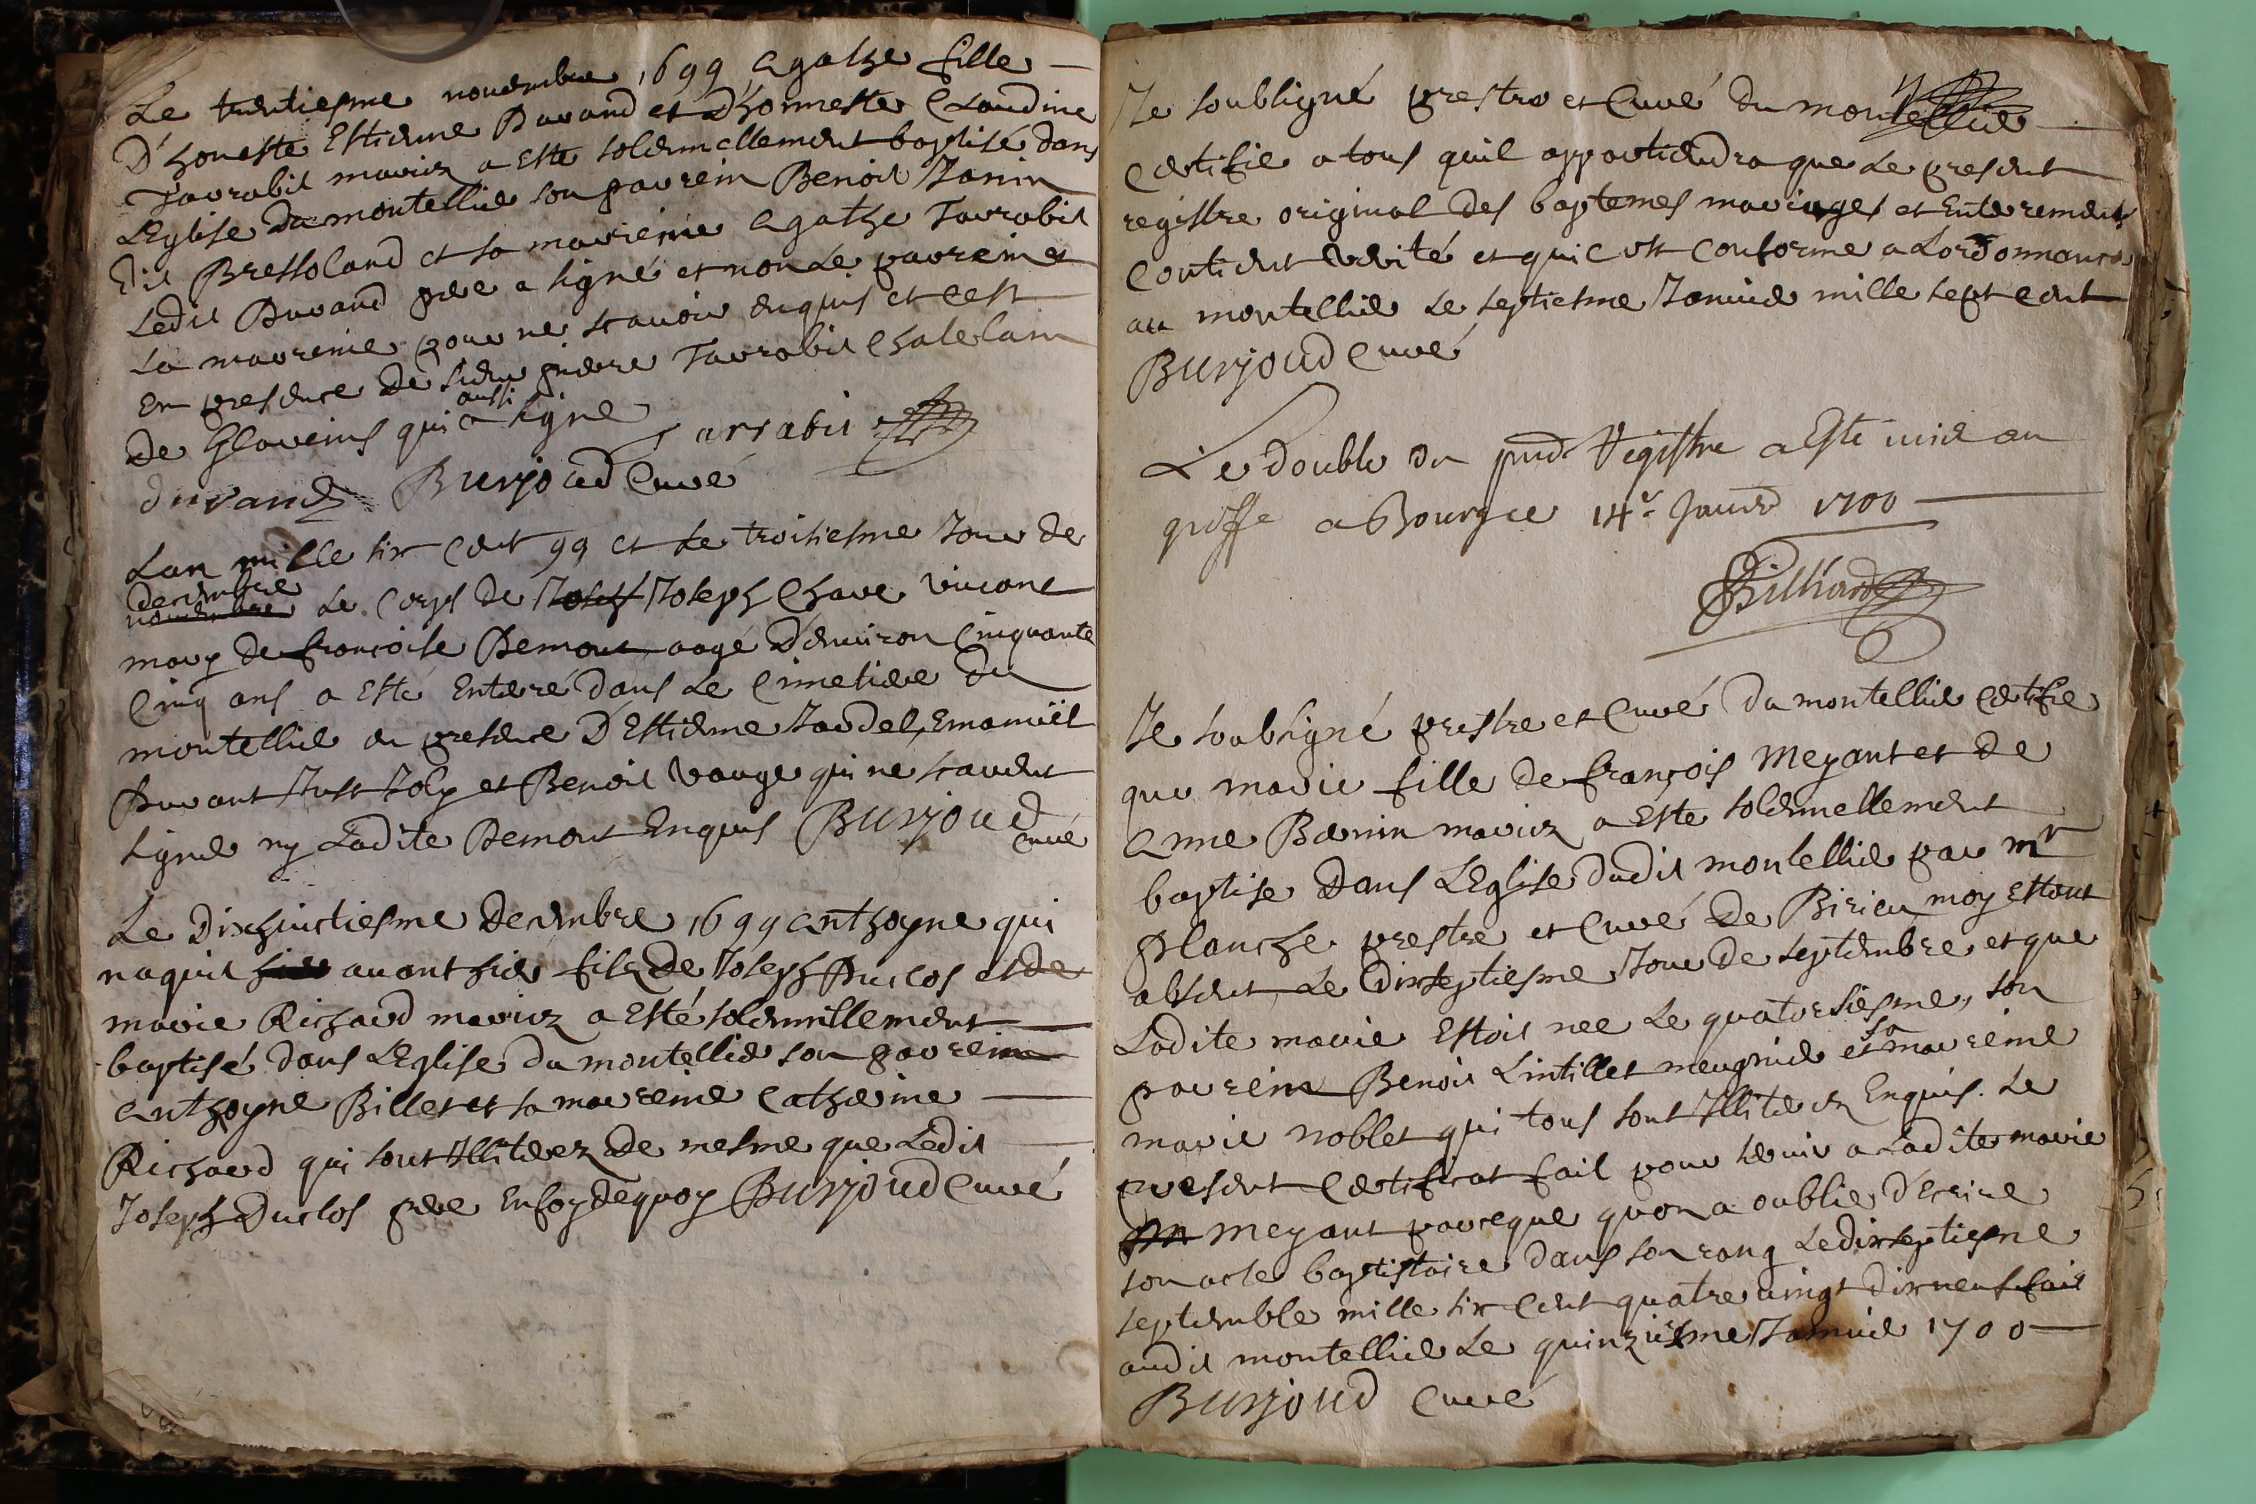 Le trentiesme novembre 1699 agathe fille
D'honeste Estienne Durand et D'honneste Claudine
Tarrabit mariez a esté solemnellement baptisé dans
L'Eglise du montellier son parrein Benoit Janin
dit Bressoland et sa marreine agathe Tarrabit
Ledit Durand pere a signé et non Le parrein et
La marreine pour ne scavoir enquis et c'est
En presence de sieur pierre Tarrabit Chatelain
de Glareins qui aussi a signe
Tarrabit
durand Burjoud Curé
Lan mille six cent 99 et Le troisiesme Jour de
decembre
novembre Le Corps de Josef Joseph Chave vivant
mary de françoise Demont aagé D'environ Cinquante
Cinq ans a Esté Enterré dans Le Cimetiere du
montellier en presence D'Estienne Jaudel, Emanuël
Durant Just Joly et Benoit Vauge qui ne scavent
signer ny Ladite Demont Enquis Burjoud
Curé
Le Dixhuictiesme decembre 1699 anthoyne qui
naquit hier avant hier fils de Joseph Duclos et de
marie Richard mariez a Esté solemnellement
baptisé dans L'Eglise du montellier son parrein
anthoyne Billet et sa marreine Catherine
Richard qui sont Illiterez de mesme que Ledit
Joseph Duclos pere En foy dequoy Burjoud Curé
Je soubsigné prestre et Curé du montellier
Certifie a tous quil appartiendra que Le present
registre original des baptemes mariages et Enterrements
Contient verité et quil est Conforme a Lordonnance
au montellier Le septiesme Janvier mille sept cent
Burjoud Curé
Le double du pnt Registre a Esté mis au
greffe a Bourg ce 14e Janvier 1700
Je soubsigné prestre et Curé du montellier Certifie
que marie fille de françois Meyant et de
anne Bernin mariez a Esté solemnellement
baptisé dans L'Eglise dudit montellier par mr
planche prestre et Curé de Birieu moy Estant
absent Le Dixseptiesme Jour de septembre et que
Ladite marie Estoit nee Le quatorsiesme, son
parrein Benoit Lintillet meugnier et sa marreine
marie noblet qui tous sont Illiterez Enquis. Le
present Certificat fait pour servir a Ladite marie
m meyant parceque qu'on a oublie d'Ecrire
son acte baptistaire dans son rang Le dixseptiesme
septembre mille six cent quatre vingt dix neuf fait
audit montellier Le quinziesme Janvier 1700
Burjoud Curé